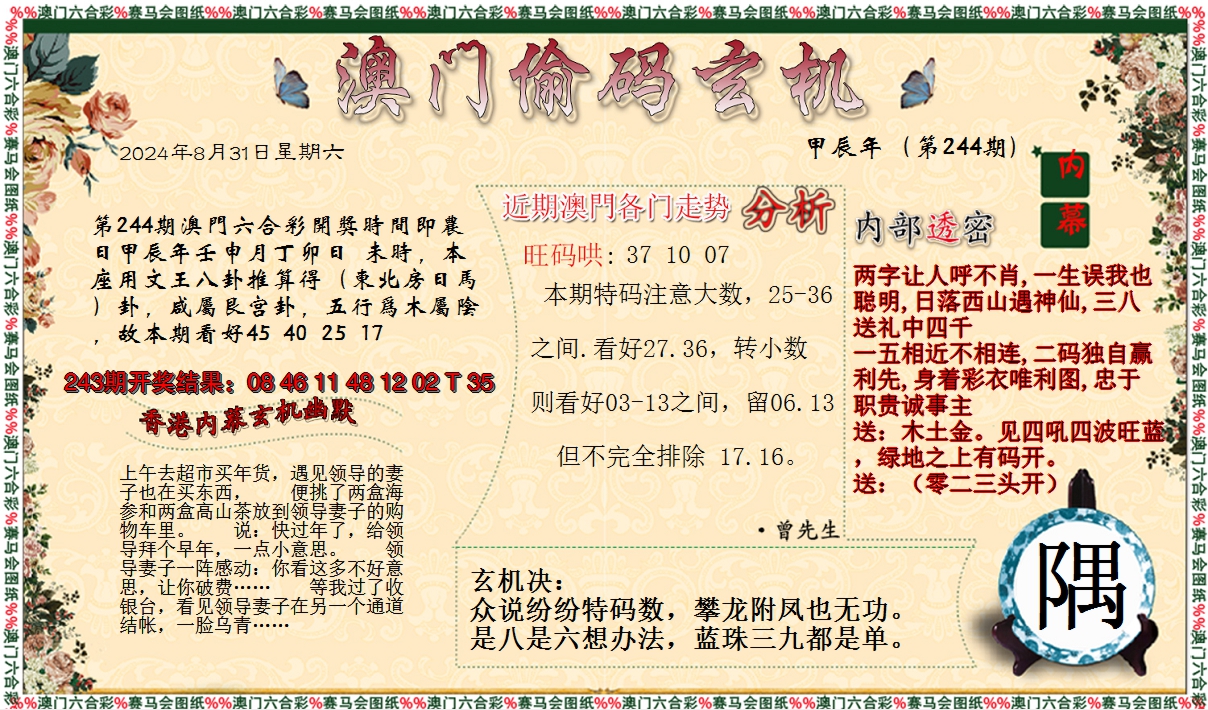 %%澳门六合彩%赛马会图纸%%澳门六合彩%赛马会图纸%%澳门六合彩%赛马会图纸%%澳门六合彩%赛马会图纸%%澳门六合彩%赛马会图纸%%澳门六合彩%赛马会图纸%%
澳门偷码玄机
2024年8月31日星期六
甲辰年（第244期）
第244期澳門六合彩開獎時間即農
日甲辰年壬申月丁卯日 未時，本
座用文王八卦推算得（東北房日馬
）卦，咸屬艮宫卦，五行爲木屬陰
，故本期看好45 40 25 17
243期开奖结果：08 46 11 48 12 02 T 35
香港内幕玄机幽默
上午去超市买年货，遇见领导的妻
子也在买东西， 便挑了两盒海
参和两盒高山茶放到领导妻子的购
物车里。 说：快过年了，给领
导拜个早年，一点小意思。 领
导妻子一阵感动：你看这多不好意
思，让你破费…… 等我过了收
银台，看见领导妻子在另一个通道
结帐，一脸乌青……
近期澳門各门走势 分析
旺码哄: 37 10 07
本期特码注意大数，25-36
之间.看好27.36，转小数
则看好03-13之间，留06.13
但不完全排除 17.16。
·曾先生
玄机决：
众说纷纷特码数，攀龙附凤也无功。
是八是六想办法，蓝珠三九都是单。
内幕
内部透密
两字让人呼不肖,一生误我也
聪明,日落西山遇神仙,三八
送礼中四千
一五相近不相连,二码独自赢
利先,身着彩衣唯利图,忠于
职贵诚事主
送：木土金。见四吼四波旺蓝
，绿地之上有码开。
送：（零二三头开）
隅
%%澳门六合彩%赛马会图纸%%澳门六合彩%赛马会图纸%%澳门六合彩%赛马会图纸%%澳门六合彩%赛马会图纸%%澳门六合彩%赛马会图纸%%澳门六合彩%赛马会图纸%%